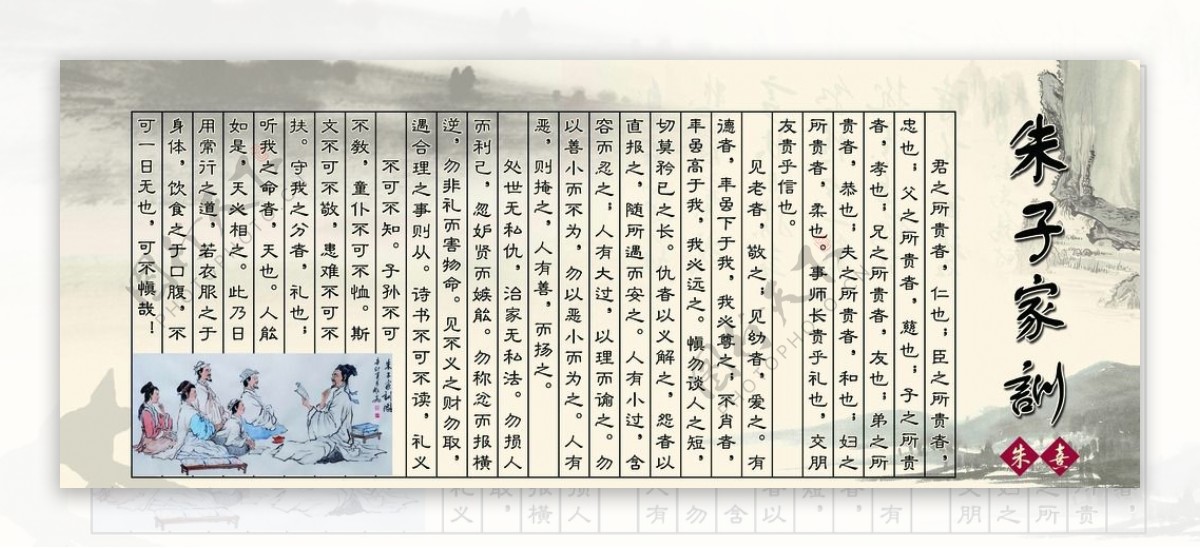 朱子家訓
朱喜
君之所贵者，仁也；臣之所贵者，
忠也；父之所贵者，慈也；子之所贵
者，孝也；兄之所贵者，友也；弟之所
贵者，恭也；夫之所贵者，和也；妇之
所贵者，柔也。事师长贵乎礼也，交朋
友贵乎信也。
见老者，敬之；见幼者，爱之。有
德者，年虽下于我，我必尊之；不肖者，
年虽高于我，我必远之。慎勿谈人之短，
切莫矜己之长。仇者以义解之，怨者以
直报之，随所遇而安之。人有小过，含
容而忍之；人有大过，以理而谕之。勿
以善小而不为，勿以恶小而为之。人有
恶，则掩之，人有善，而扬之。
处世无私仇，治家无私法。勿损人
而利己，忽妒贤而嫉能。勿称忿而报横
逆，勿非礼而害物命。见不义之财勿取，
遇合理之事则从。诗书不可不读，礼义
不可不知。子孙不可
不敎，童仆不可不恤。斯
文不可不敬，患难不可不
扶。守我之分者，礼也；
听我之命者，天也。人能
如是，天必相之。此乃日
用常行之道，若衣服之于
身体，饮食之于口腹，不
可一日无也，可不慎哉！